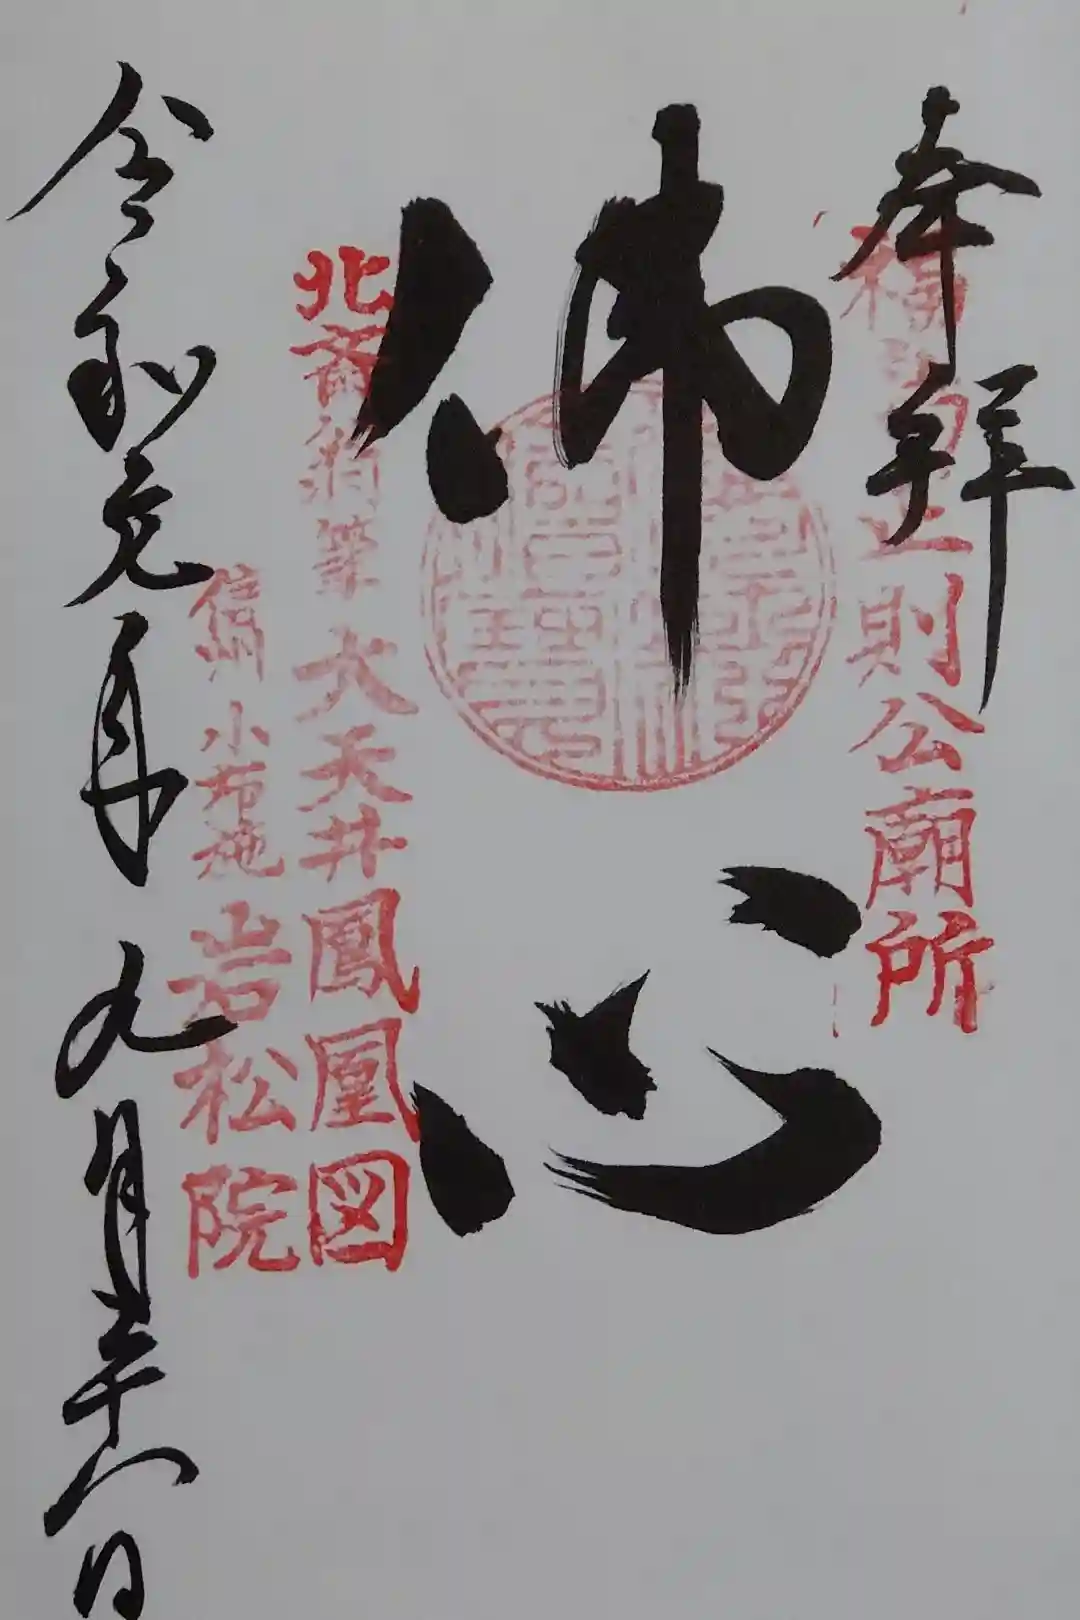 奉拝
福島正則公廟所
佛心
北斎翁筆 大天井鳳凰図
信州 小布施 岩松院
令和元年九月廿八日